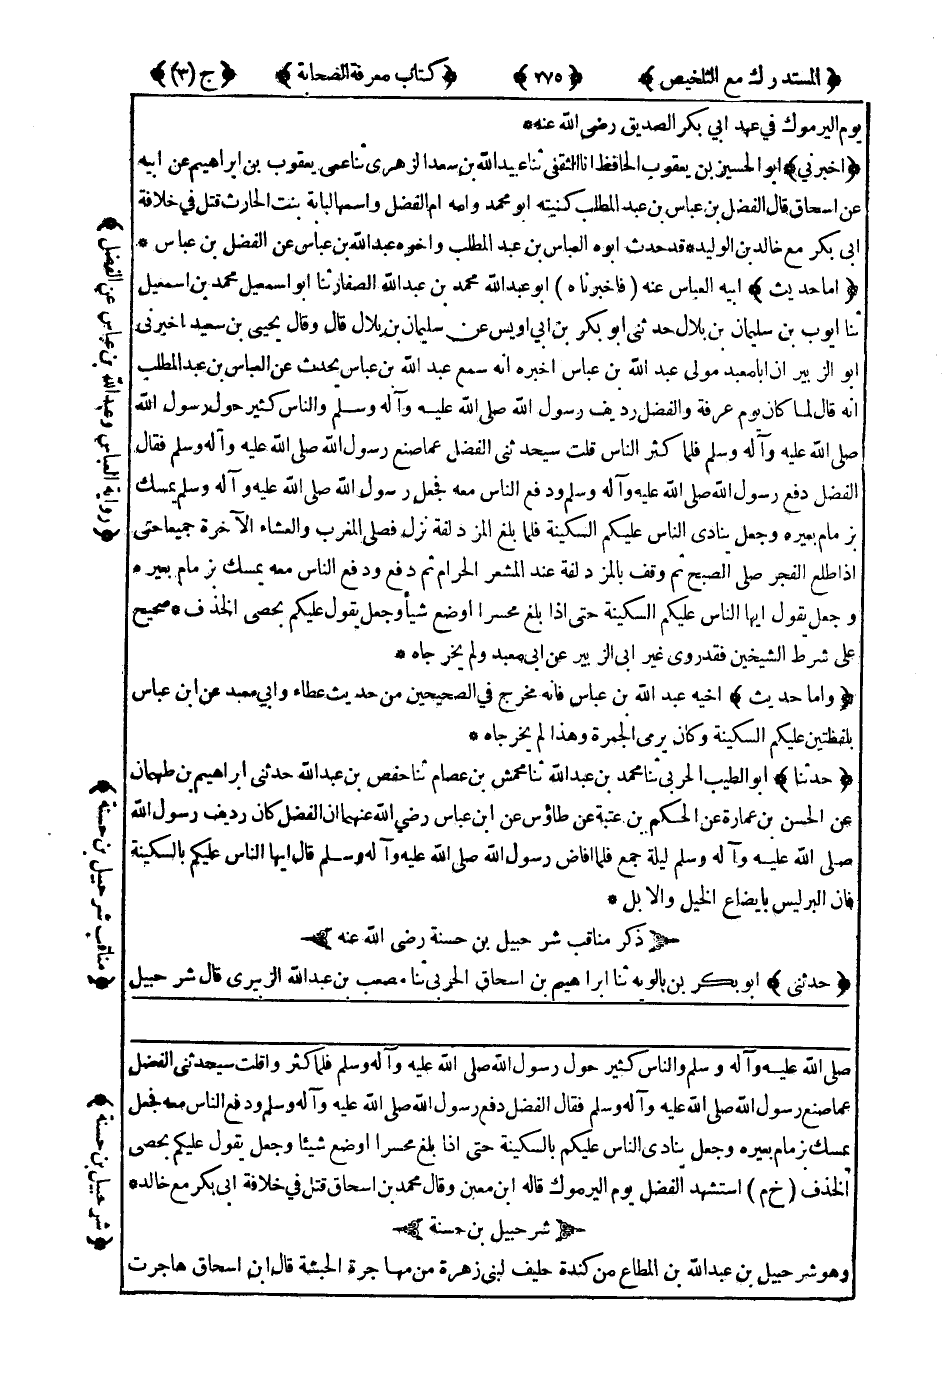 ﴿ المستدرك مع التلخيص ﴾ ﴿ ٢٧٥ ﴾ ﴿ كتاب معرفة الصحابة ﴾ ﴿ ج (٣) ﴾
يوم اليرموك في عهد ابي بكر الصديق رضى الله عنه *
﴿ اخبرني ﴾ ابو الحسين بن يعقوب الحافظ انا الثقفى ثنا عبيد الله بن سعد الزهرى ثنا عمى يعقوب بن ابراهيم عن ابيه
عن اسحاق قال الفضل بن عباس بن عبد المطلب كنيته ابو محمد وامه ام الفضل واسمها لبابة بنت الحارث قتل في خلافة
ابى بكر مع خالد بن الوليد * قد حدث ابوه العباس بن عبد المطلب واخوه عبدالله بن عباس عن الفضل بن عباس *
﴿ اما حديث ﴾ ابيه العباس عنه ( فاخبرناه ) ابو عبدالله محمد بن عبدالله الصفار ثنا ابو اسمعيل محمد بن اسمعيل
ثنا ايوب بن سليمان بن بلال حدثنى ابو بكر بن ابي اويس عن سليمان بن بلال قال وقال يحيى بن سعيد اخبرنى
ابو الزبير ان ابا معبد مولى عبد الله بن عباس اخبره انه سمع عبد الله بن عباس يحدث عن العباس بن عبد المطلب
انه قال لما كان يوم عرفة والفضل رديف رسول الله صلى الله عليه وآله وسلم والناس كثير حول رسول الله
صلى الله عليه وآله وسلم فلما كثر الناس قلت سيحدثنى الفضل عما صنع رسول الله صلى الله عليه وآله وسلم فقال
الفضل دفع رسول الله صلى الله عليه وآله وسلم ودفع الناس معه فجعل رسول الله صلى الله عليه وآله وسلم يمسك
بزمام بعيره وجعل ينادى الناس عليكم السكينة فلما بلغ المزدلفة نزل فصلى المغرب والعشاء الآخرة جميعا حتى
اذا طلع الفجر صلى الصبح ثم وقف بالمزدلفة عند المشعر الحرام ثم دفع ودفع الناس معه يمسك بزمام بعيره
وجعل يقول ايها الناس عليكم السكينة حتى اذا بلغ محسرا اوضع شيأ وجعل يقول عليكم بحصى الخذف * صحيح
على شرط الشيخين فقد روى غير ابى الزبير عن ابى معبد ولم يخرجاه *
﴿ واما حديث ﴾ اخيه عبد الله بن عباس فانه مخرج في الصحيحين من حديث عطاء وابى معبد عن ابن عباس
بلفظتين عليكم السكينة وكان يرمى الجمرة وهذا لم يخرجاه *
﴿ حدثنا ﴾ ابو الطيب الحربى ثنا محمد بن عبدالله ثنا محمش بن عصام ثنا حفص بن عبدالله حدثنى ابراهيم بن طهمان
عن الحسن بن عمارة عن الحكم بن عتبة عن طاؤس عن ابن عباس رضي الله عنهما ان الفضل كان رديف رسول الله
صلى الله عليه وآله وسلم ليلة جمع فلما افاض رسول الله صلى الله عليه وآله وسلم قال ايها الناس عليكم بالسكينة
فان البر ليس بايضاع الخيل والابل *
ذكر مناقب شرحبيل بن حسنة رضى الله عنه
﴿ حدثنى ﴾ ابو بكر بن بالويه ثنا ابراهيم بن اسحاق الحربى ثنا مصعب بن عبدالله الزبيرى قال شرحبيل
صلى الله عليه وآله وسلم والناس كثير حول رسول الله صلى الله عليه وآله وسلم فلما كثروا قلت سيحدثنى الفضل
عما صنع رسول الله صلى الله عليه وآله وسلم فقال الفضل دفع رسول الله صلى الله عليه وآله وسلم ودفع الناس معه فجعل
يمسك بزمام بعيره وجعل ينادى الناس عليكم بالسكينة حتى اذا بلغ محسرا اوضع شيئا وجعل يقول عليكم بحصى
الخذف ( خ م ) استشهد الفضل يوم اليرموك قاله ابن معين وقال محمد بن اسحاق قتل في خلافة ابى بكر مع خالد *
شرحبيل بن حسنة
وهو شرحبيل بن عبدالله بن المطاع من كندة حليف لبنى زهرة من مهاجرة الحبشة قال ابن اسحاق هاجرت
﴿ رواية العباس وعبدالله بن عباس عن الفضل ﴾
﴿ مناقب شرحبيل بن حسنة ﴾
﴿ شرحبيل بن حسنة ﴾